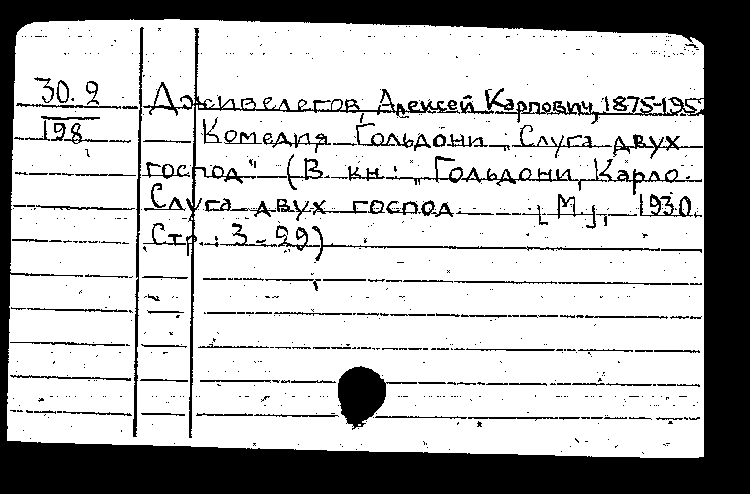 30.2
198
Дживелегов, Алексей Карпович, 1875-195
Комедия Гольдони „Слуга двух
господ" (В кн.: „Гольдони, Карло.
Слуга двух господ. [М.], 1930.
Стр.: 3-29)